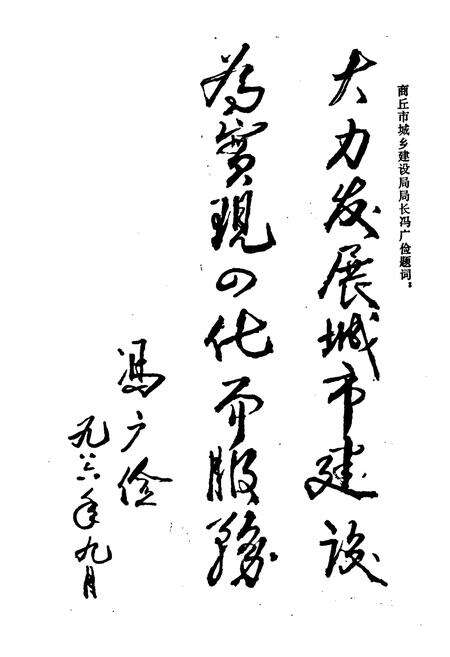 商丘市城乡建设局局长冯广俭题词：
大力发展城市建设
为實現四化而服務
冯广俭
九八六年九月